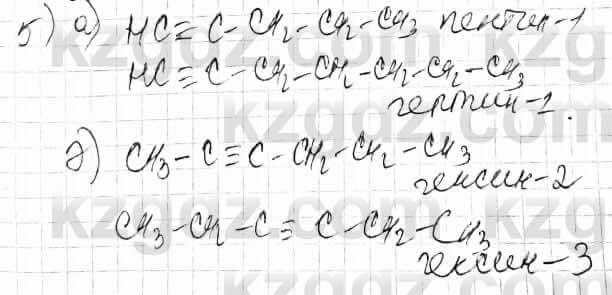 5) а) HC≡C-CH2-CH2-CH3 пентин-1
HC≡C-CH2-CH2-CH2-CH2-CH3
гептин-1.
д) CH3-C≡C-CH2-CH2-CH3
гексин-2
CH3-CH2-C≡C-CH2-CH3
гексин-3
kzgdz.com